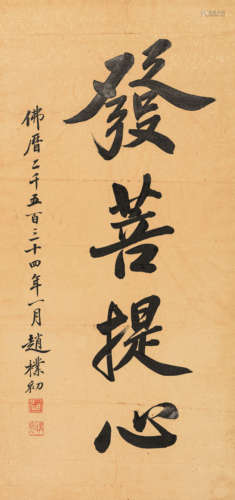 發菩提心
佛曆二千五百三十四年一月 趙樸初